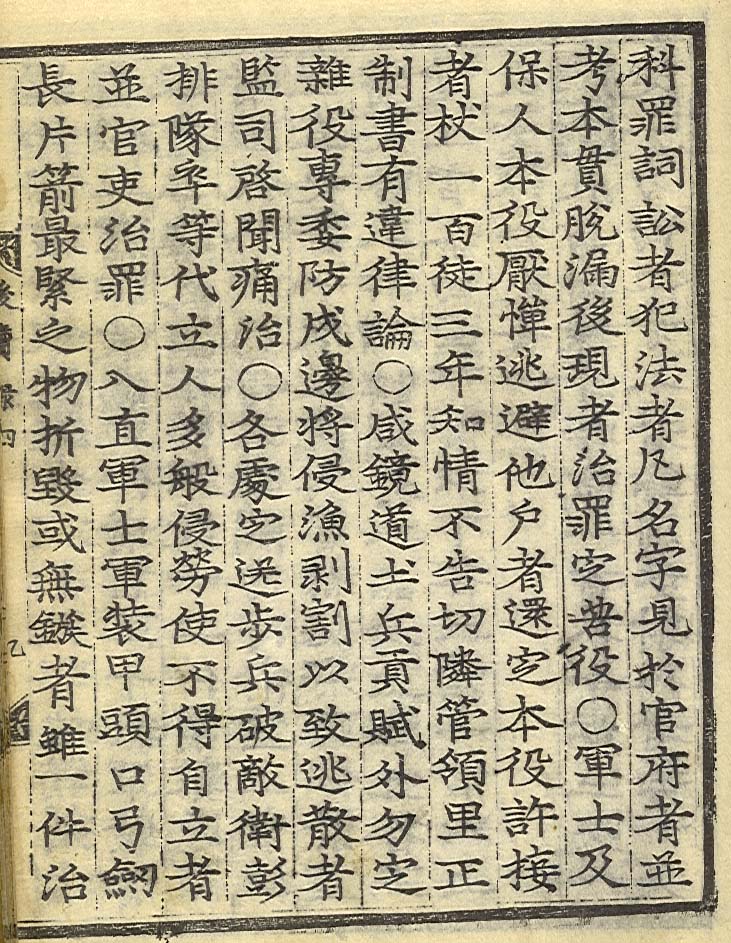 科罪詞訟者犯法者凡名字見於官府者並
考本貫脫漏後現者治罪定苦役〇軍士及
保人本役厭憚逃避他戶者還定本役許接
者杖一百徒三年知情不告切隣管領里正
制書有違律論〇咸鏡道土兵貢賦外勿定
雜役專委防戍邊將侵漁剥割以致逃散者
監司啓聞痛治〇各處定送步兵破敵衛彭
排隊卒等代立人多般侵勞使不得自立者
並官吏治罪〇入直軍士軍裝甲頭口弓劒
長片箭最緊之物折毁或無鏃者雖一件治
後續錄四